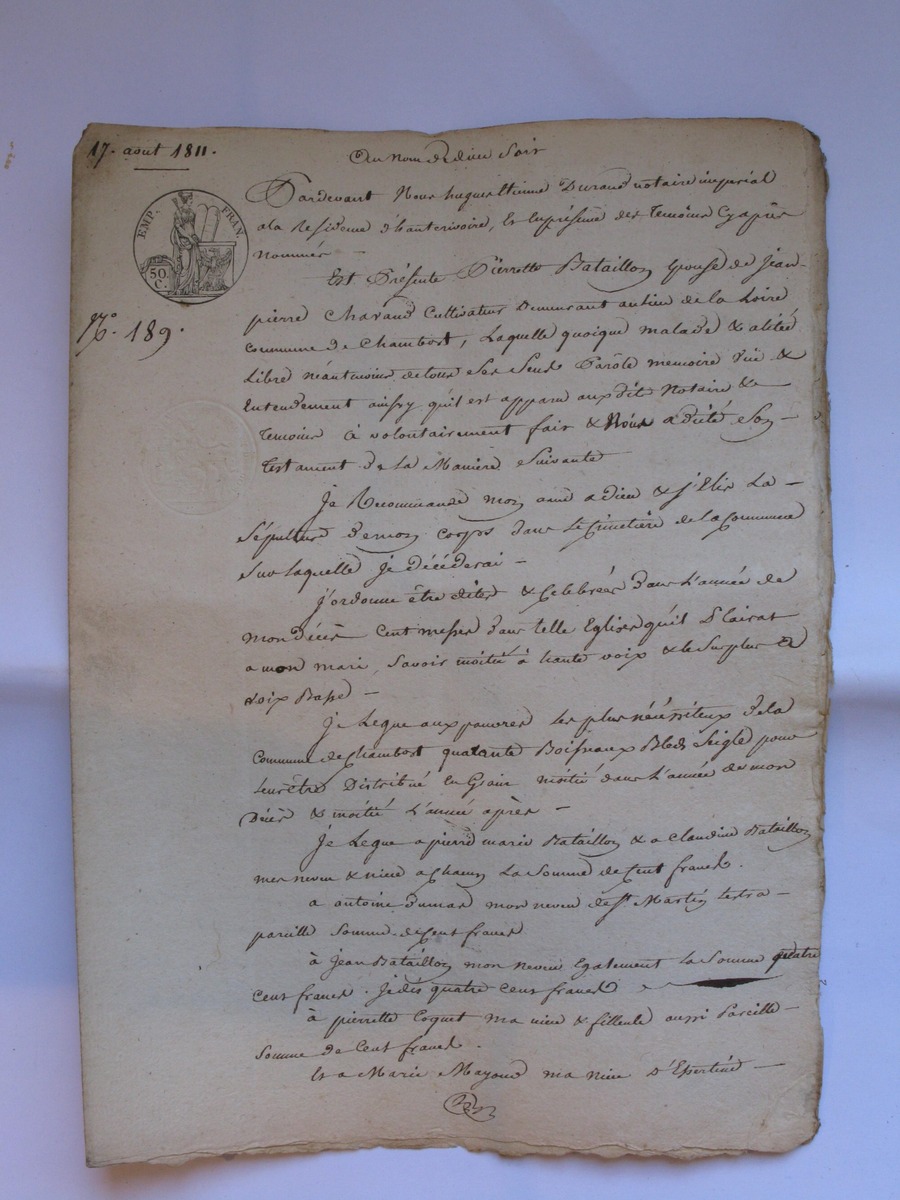 17. aout 1811.
Au nom de dieu Soit
EMP. FRAN.
50 C.
N.° 189.
Pardevant Nous hugues Etienne Durand notaire imperial
ala Residence d'hauterivoire, & En présence des Temoins Cy après
nommés —
Est Présente Pierrette Bataillon Epouse de Jean-
pierre Chavand Cultivateur Demeurant au lieu de la Loire
Commune de Chambost, Laquelle quoique malade & alitée
Libre néantmoins de tous Ses Sens Parôle mémoire Vüe &
Entendement ainsy qu'il est apparu auxdit Notaire &
Temoins à volontairement fait & Nous a dicté Son —
Testament de La Maniere Suivante
Je Recommande mon ame a dieu & j'Elis La —
Sépulture de mon Corps dans Le Cimetière de la Commune
Sur laquelle je décéderai —
J'ordonne être dites & Celebrées dans L'année de
mon décès Cent messes dans telle Eglise qu'il Plaira
a mon mari, Savoir moitié à haute voix & le Surplus a
Voix Basse —
Je Legue aux pauvres les plus nécéssiteux de la
Commune de Chambost quarante Boisseaux Bled Seigle pour
Leur être Distribué En Grain moitié dans L'année de mon
Décès & moitié L'année après —
Je Legue a pierre marie Bataillon & a Claudine Bataillon
mes neveu & niece a Chacun La Somme de Cent francs.
a antoine dumas mon neveu de St. Martin Lestra —
pareille Somme de Cent francs
à Jean Bataillon mon neveu Egalement la Somme quatre
Cent francs. Je dis quatre Cent francs
à pierrette Coquet ma niece & filleule aussi Pareille —
Somme de Cent francs.
Et a Marie Mayoud ma niece d'Epertieux —